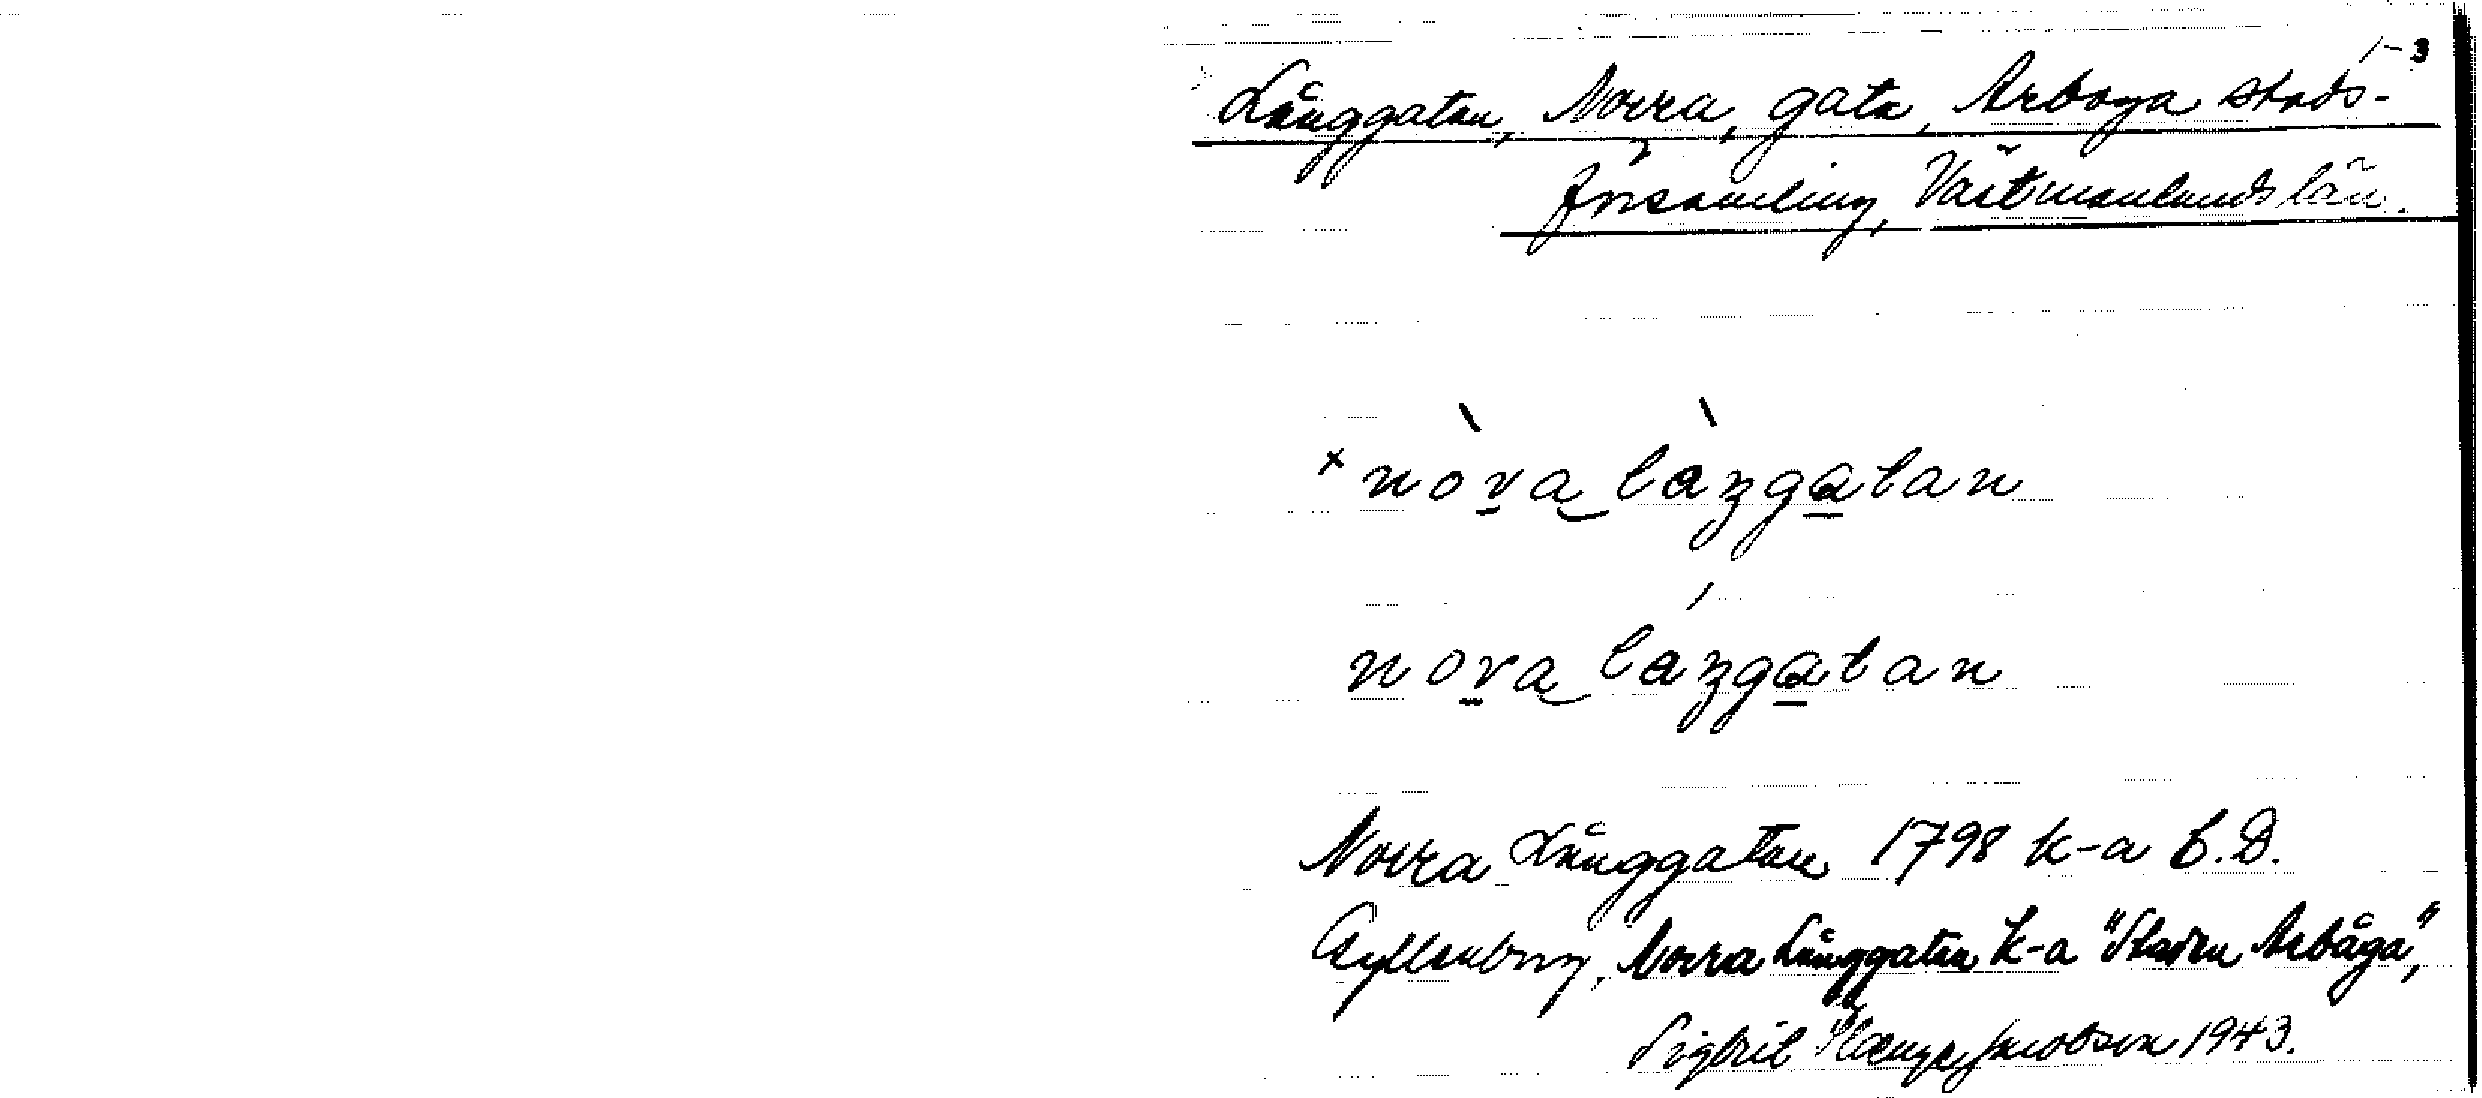 1-3
Långgatan, Norra, gata, Arboga stads-
församling, Västmanlands län.
× nòra làŋgatan
nora láŋgatan
Norra Långgatan 1798 k-a C.D.
Gyllenborg, Norra Långgatan k-a "Staden Arbåga",
Sigbrit Plænge Jacobson 1943.